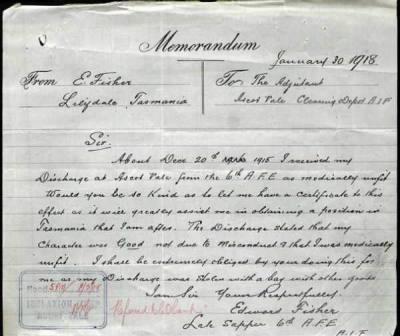 Memorandum
January 30 1918
From E. Fisher
Lilydale, Tasmania
To The Adjutant
Ascot Vale Clearing Depot A.I.F
Sir.
About Dece 20th 1915 I received my
Discharge at Ascot Vale from the 6th A.F.E as medically unfit
Would you be so Kind as to let me have a certificate to this
effect as it will greatly assist me in obtaining a position in
Tasmania that I am after. The Discharge stated that my
Character was Good not due to Misconduct & that I was medically
unfit. I shall be extremely obliged by your doing this for
me as my Discharge was stolen with a bag with other goods
I am Sir Yours Respectfully
Edward Fisher
Late Sapper 6th A.F.E
A.I.F.